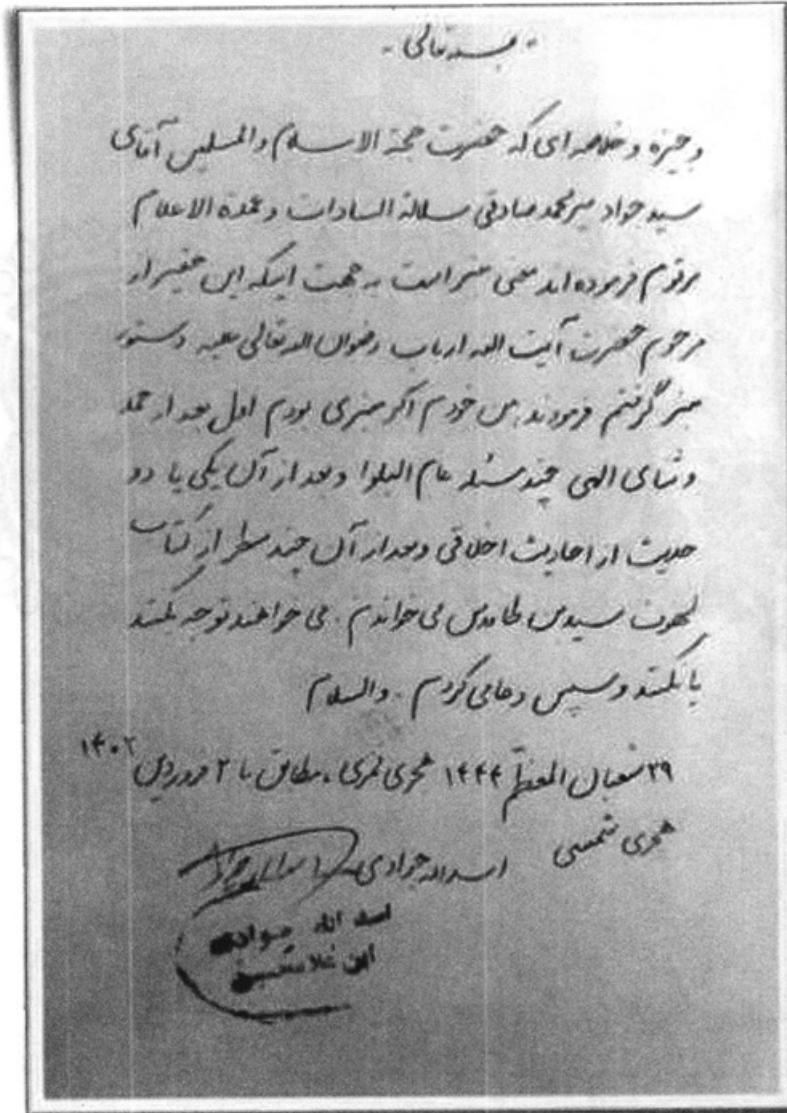 - بسمه تعالی -
وجیزه و خلاصه ای که حضرت حجة الاسلام والمسلمین آقای
سید جواد میرمحمد صادقی سلالة السادات و عمدة الاعلام
مرقوم فرموده اند معنی منبر است به جهت اینکه این حقیر از
مرحوم حضرت آیت الله ارباب رضوان الله تعالی علیه دستور
منبر گرفتم فرمودند من خودم اگر منبری بودم اول بعد از حمد
و ثنای الهی چند مسئله عام البلوا و بعد از آن یکی یا دو
حدیث از احادیث اخلاقی و بعد از آن چند سطر از کتاب
لهوف سید بن طاوس می خواندم . می خواهند توجه بکنند
یا نکنند و سپس دعا می کردم . والسلام
۲۹ شعبان المعظم ۱۴۴۴ هجری قمری ، مطابق با ۲ فروردین ۱۴۰۲
هجری شمسی اسد الله جوادی
اسد الله جوادی
ابن غلامحسین